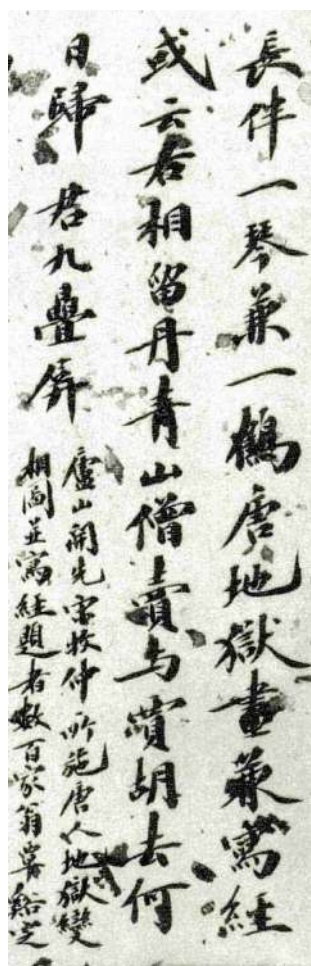 長伴一琴兼一鶴唐地獄畫兼寫経
或云君相留丹青山僧賣与賞胡去何
日歸 君九疊屏
廬山開先宋牧仲所施唐人地獄變
相圖並寫経題者數百家翁覃谿芝